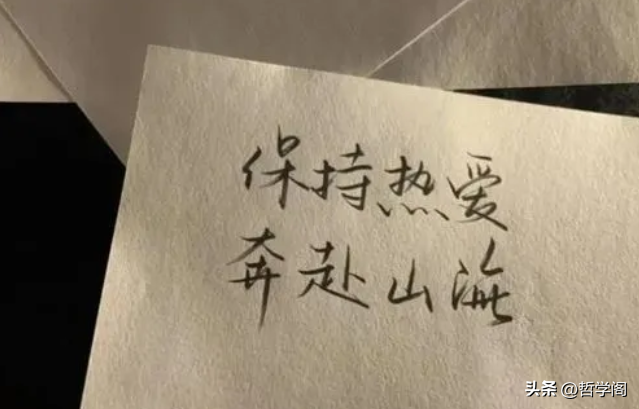 保持热爱
奔赴山海
头条 @哲学阁